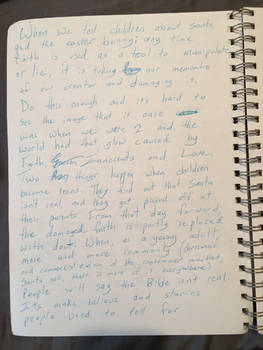 When we tell children about Santa
and the easter bunny any time
faith is used as a tool to manipulate
or lie, it is taking our memento
of our creator and damaging it.
Do this enough and its hard to
see the image that is once
was when we were 2 and the
world had that glow caused by
Faith, innocents, and Love,
Two things happen when children
become teens. They find out that Santa
isn't real and they get pissed off at
their parents. From that day forward,
the damaged faith is partly replaced
with dout. When, as a young adult,
more and more commonly
and commercialization of the
Santa
People will say the Bible isnt real.
Its make believe and stories
people used to tell for